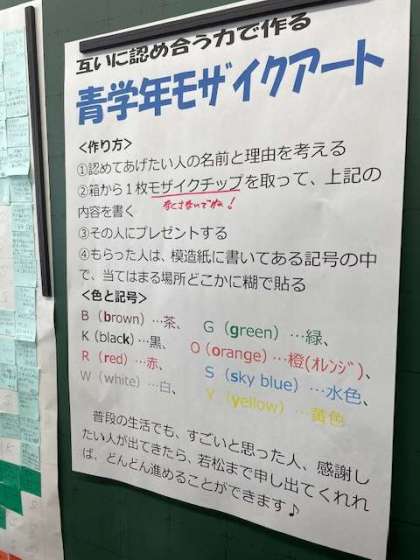 互いに認め合う力で作る
青学年モザイクアート
<作り方>
①認めてあげたい人の名前と理由を考える
②箱から１枚モザイクチップを取って、上記の
内容を書く
なくさないでね！
③その人にプレゼントする
④もらった人は、模造紙に書いてある記号の中
で、当てはまる場所どこかに糊で貼る
<色と記号>
B（brown）…茶、 G（green）…緑、
K（black）…黒、 O（orange）…橙(ｵﾚﾝｼﾞ)、
R（red）…赤、 S（sky blue）…水色、
W（white）…白、 Y（yellow）…黄色
普段の生活でも、すごいと思った人、感謝し
たい人が出てきたら、若松まで申し出てくれれ
ば、どんどん進めることができます♪